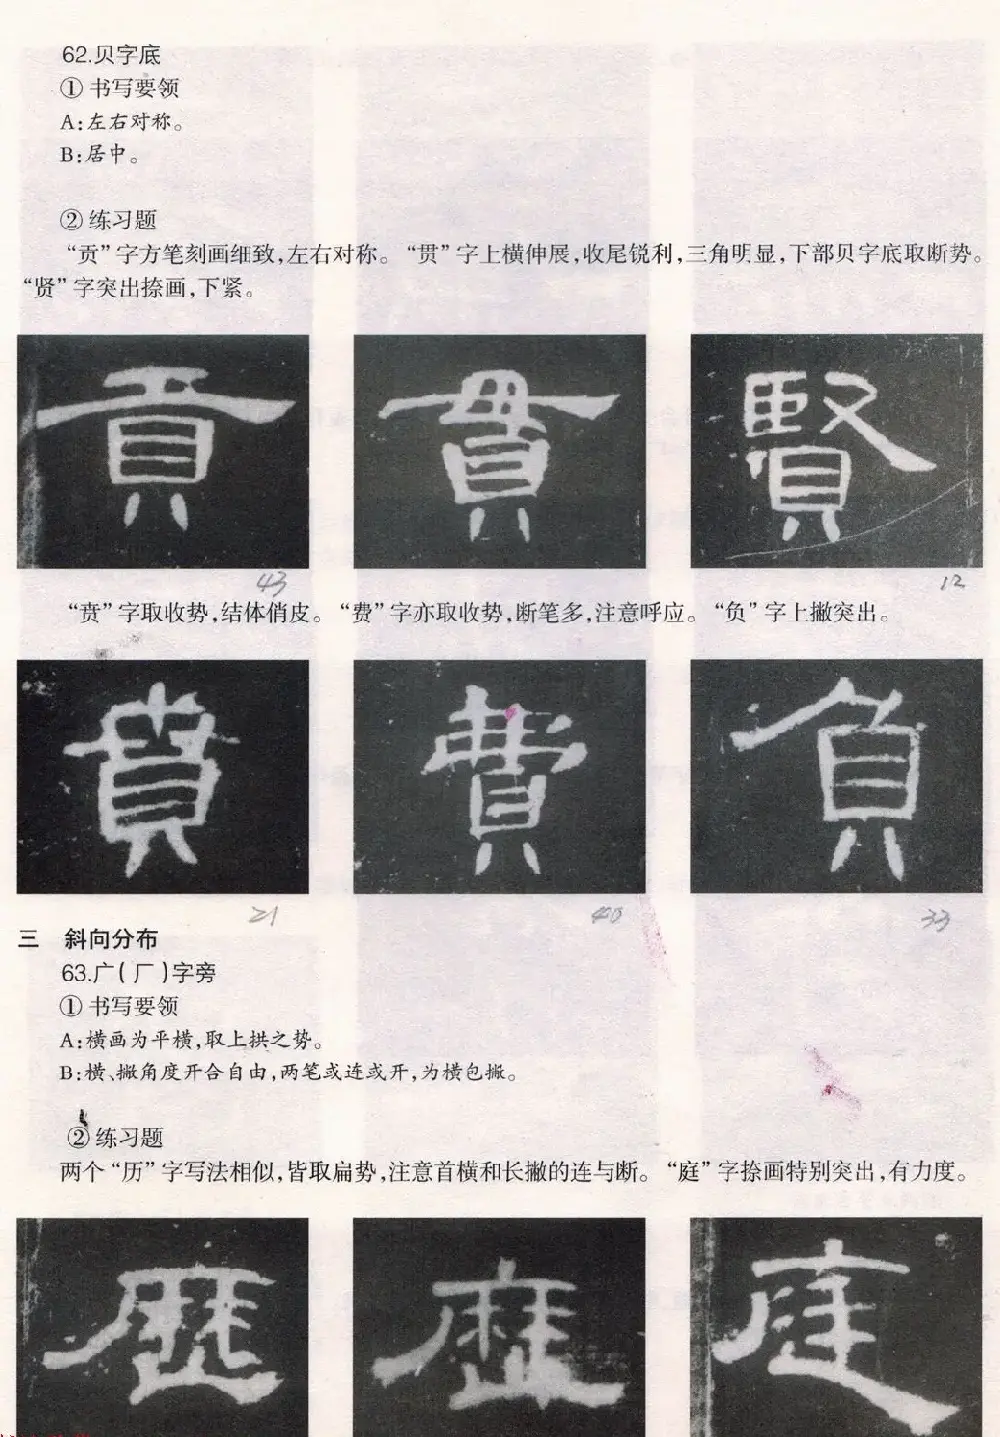 62.贝字底
①书写要领
A:左右对称。
B:居中。
②练习题
“贡”字方笔刻画细致,左右对称。“贯”字上横伸展,收尾锐利,三角明显,下部贝字底取断势。
“贤”字突出捺画,下紧。
貢 貫 賢
43 12
“贲”字取收势,结体俏皮。“费”字亦取收势,断笔多,注意呼应。“负”字上撇突出。
賁 費 負
21 40 33
三 斜向分布
63.广(厂)字旁
①书写要领
A:横画为平横,取上拱之势。
B:横、撇角度开合自由,两笔或连或开,为横包撇。
②练习题
两个“历”字写法相似,皆取扁势,注意首横和长撇的连与断。“庭”字捺画特别突出,有力度。
歷 歷 庭